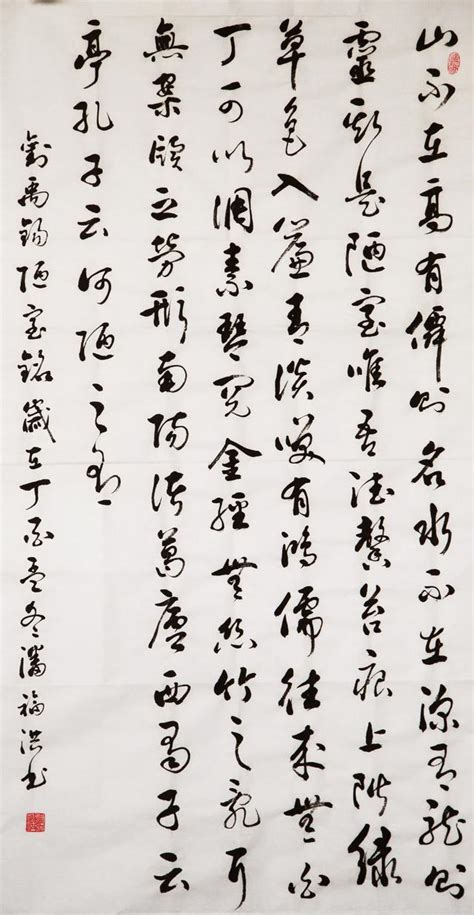 山不在高有僊則名水不在深有龍則
靈斯是陋室唯吾德馨苔痕上階綠
草色入簾青談笑有鴻儒往來無白
丁可以調素琴閱金經無絲竹之亂耳
無案牘之勞形南陽諸葛廬西蜀子云
亭孔子云何陋之有
劉禹錫陋室銘歲在丁酉孟冬潘福洪書